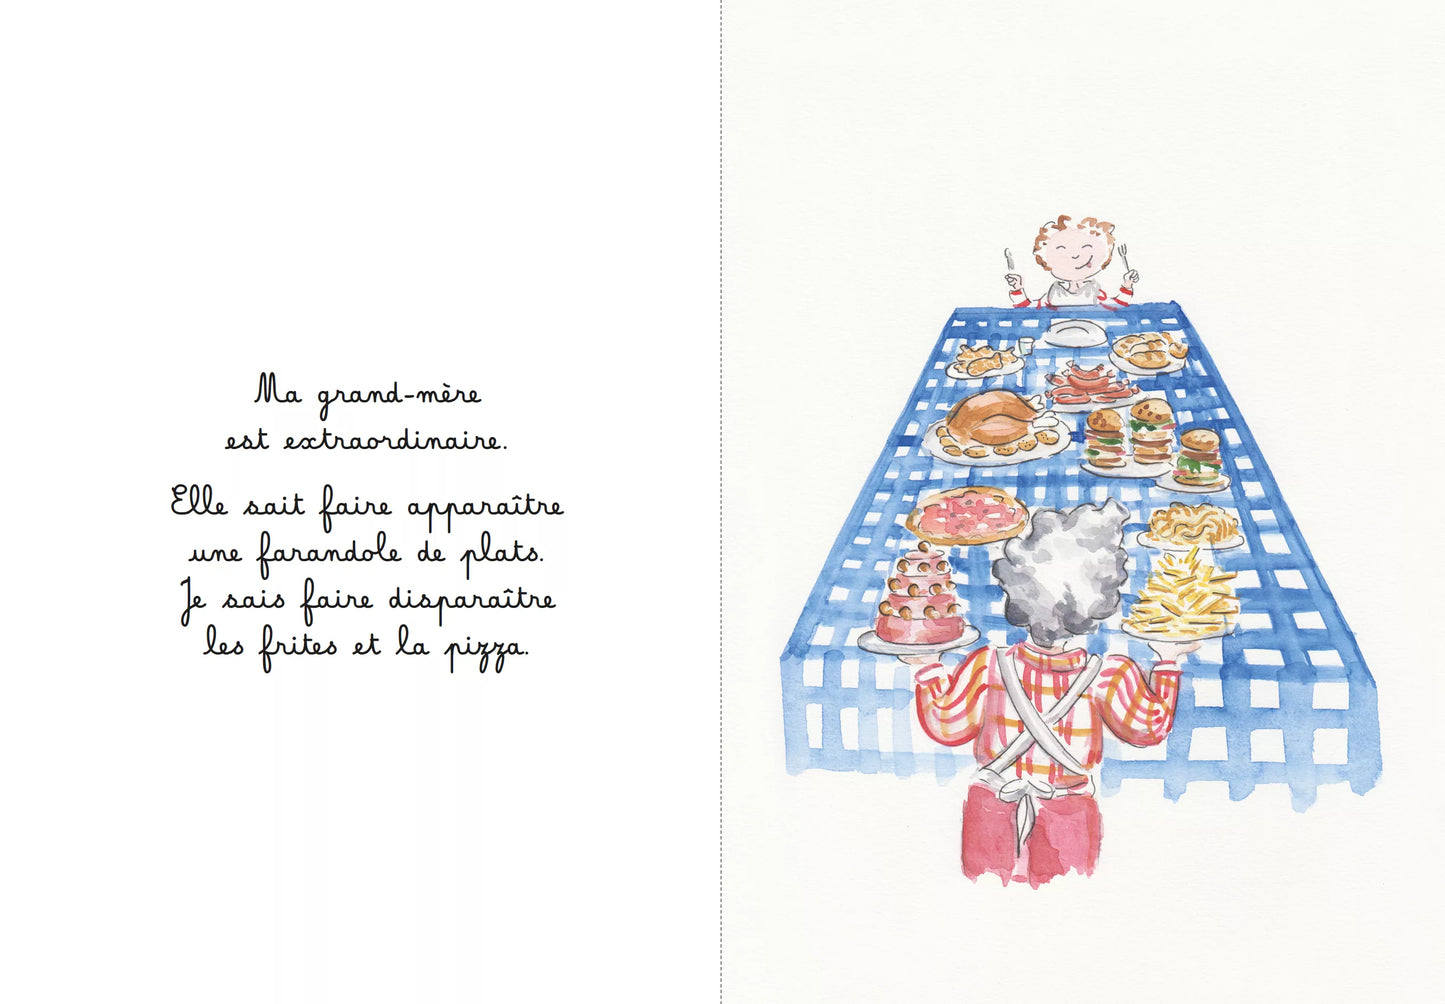 Ma grand-mère
est extraordinaire.
Elle sait faire apparaître
une farandole de plats.
Je sais faire disparaître
les frites et la pizza.